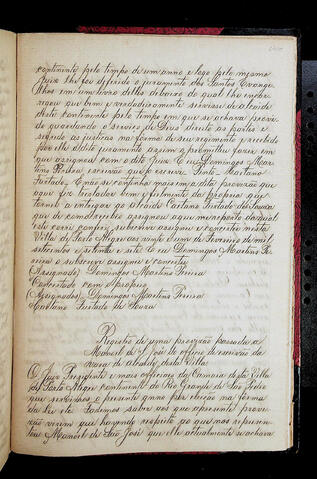 continente pelo tempo de um anno e logo pelo mesmo
Juiz lhe foi deferido o juramento dos Santos Evange-
lhos em um livro delles debaixo do qual lhe encar-
regou que bem e verdadeiramente servisse de alcaide
deste continente pelo tempo em que se achava provi-
do guardando o serviço de Deus direito as partes e
segredo as justiças na forma de seu regimento e recebido
por elle o dito juramento assim o prometteu fazer em
que assignou com o dito Juiz e eu Domingos Mar-
tins Pereira escrivão que o escrevi Pinto Caetano
Furtado. E não se continha mais em a dita provizão que
aqui fiz trasladar bem e fielmente da propria que
tornei a entregar ao Alcaide Caetano Furtado de Souza
que de como recebeu assignou aqui me reporto da qual
esta corri conferi subscrevi assignei e concertei nesta
Villa de Porto Alegre aos vinte e um de Fevereiro de mil
setecentos e setenta e sete Eu Domingos Martins Pe-
reira o subscrevi assignei e concertei
(Assignado) Domingos Martins Pereira
Concertado com a propria
(Assignados) Domingos Martins Pereira
Caetano Furtado de Souza
Registo de uma provizão passada a
Manoel de S. José do officio de escrivão da
vara do Alcaide desta Villa
O Juiz Presidente e mais officiaes da Camara desta Villa
de Porto Alegre continente do Rio Grande de São Pedro
que servimos o presente anno por eleição na forma
da Lei etc. Fazemos saber aos que a presente provi-
zão virem que havendo respeito ao que nos represen-
tou Manoel de São José que elle actualmente se achava